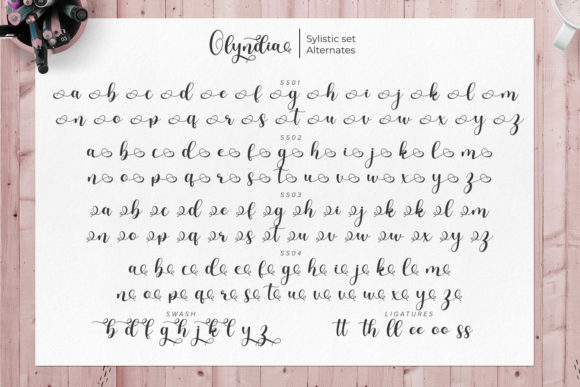 Olyndia
Sylistic set
Alternates
SS01
a b c d e f g h i j k l m
n o p q r s t u v w x y z
SS02
a b c d e f g h i j k l m
n o p q r s t u v w x y z
SS03
a b c d e f g h i j k l m
n o p q r s t u v w x y z
SS04
a b c d e f g h i j k l m
n o p q r s t u v w x y z
SWASH
b d f g h j k l y z
LIGATURES
tt th ll ee oo ss